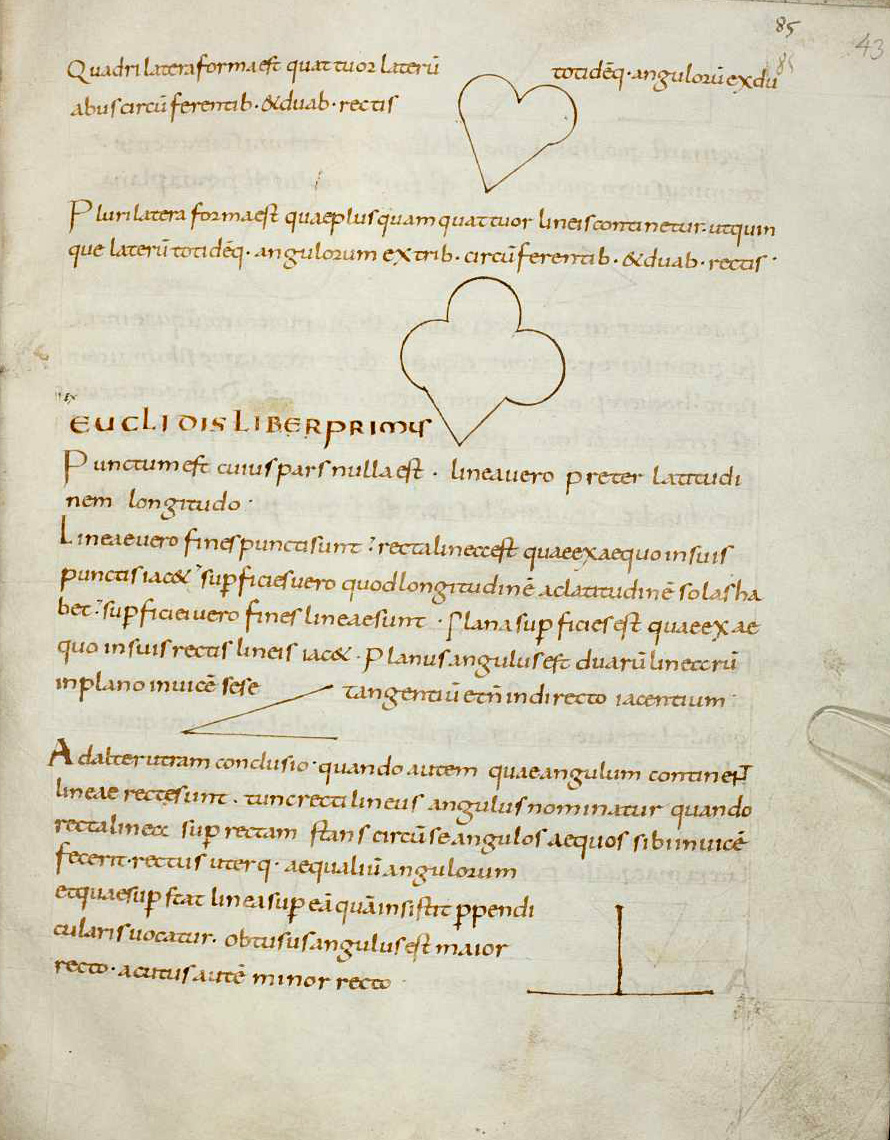 85
43
85
Quadrilatera forma est quattuor laterū totidēq· angulorū ex du
abus circū ferentib· & duab· rectis
Plurilatera forma est quae plus quam quattuor lineis continetur· ut quin
que laterū totidēq· angulorum ex trib· circū ferentib· & duab· rectis·
EX
EUCLIDIS LIBER PRIMUS
Punctum est cuius pars nulla est · linea uero preter latitudi
nem longitudo·
Lineae uero fines puncta sunt· recta linea est quae ex aequo in suis
punctis iac& sup ficies uero quod longitudinē ac latitudinē solas ha
bet· sup ficiei uero fines lineae sunt · Plana sup ficies est quae ex ae
quo in suis rectis lineis iac&· Planus angulus est duarū linearū
in plano inuicē sese tangentiū et n̄ in directo iacentium·
Ad alterutram conclusio· quando autem quae angulum continent
lineae rectae sunt · tunc recti lineus angulus nominatur quando
recta linea sup rectam stans circū se angulos aequos sibi inuicē
fecerit· rectus uterq· aequaliū angulorum
et quae sup stat linea sup eā quā insistit ppendi
cularis uocatur· obtusus angulus est maior
recto· acutus autē minor recto